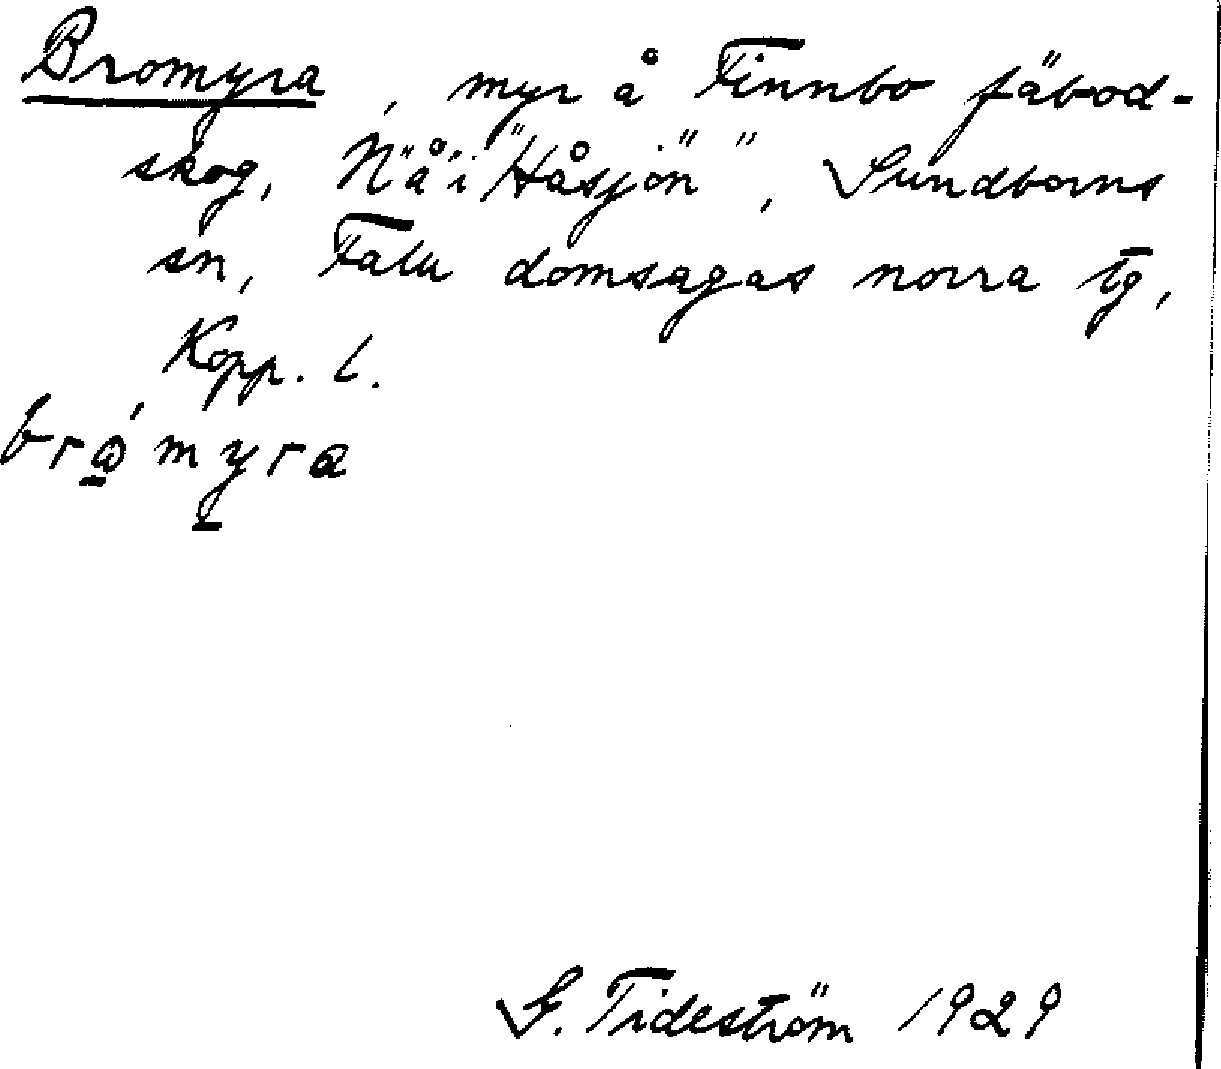 Bromyra, myr å Finnbo fäbod-
skog, N"å"i "Håsjön", Sundborns
sn, Falu domsagas norra tg,
Kopp. l.
bromyra
G. Tideström 1929